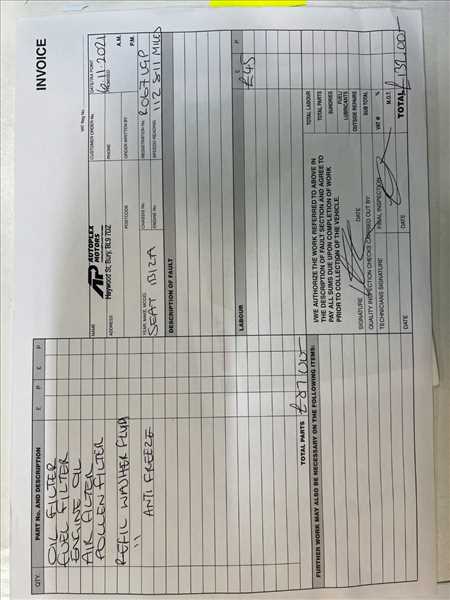 INVOICE
QTY. PART No. AND DESCRIPTION £ P £ P
OIL FILTER
FUEL FILTER
ENGINE OIL
AIR FILTER
POLLEN FILTER
REFIL WASHER FLUID
" ANTI FREEZE
TOTAL PARTS £87.00
FURTHER WORK MAY ALSO BE NECESSARY ON THE FOLLOWING ITEMS:
AP AUTOPLEX MOTORS
Heywood St, Bury, BL9 7DZ
VAT Reg No.
NAME
CUSTOMER ORDER No.
DATE/TAX POINT
6.11.2021
ADDRESS
PHONE
PROMISED
A.M.
P.M.
POSTCODE
ORDER WRITTEN BY
YEAR, MAKE, MODEL
SEAT IBIZA
CHASSIS No.
REGISTRATION No.
ENGINE No.
SPEEDO READING
112811 MILES
DESCRIPTION OF FAULT
LABOUR £ P
£45
I/WE AUTHORIZE THE WORK REFERRED TO ABOVE IN
THE DESCRIPTION OF FAULT SECTION AND AGREE TO
PAY ALL SUMS DUE UPON COMPLETION OF WORK
PRIOR TO COLLECTION OF THE VEHICLE.
SIGNATURE DATE
QUALITY INSPECTION CHECKS CARRIED OUT BY
TECHNICIANS SIGNATURE FINAL INSPECTION
DATE DATE
TOTAL LABOUR
TOTAL PARTS
SUNDRIES
FUEL/
LUBRICANTS
OUTSIDE REPAIRS
SUB TOTAL
VAT @ %
M.O.T.
TOTAL